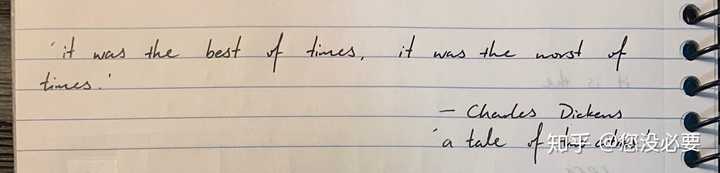 'it was the best of times, it was the worst of
times.'
— Charles Dickens
'a tale of two cities'
知乎 @您没必要
it is the